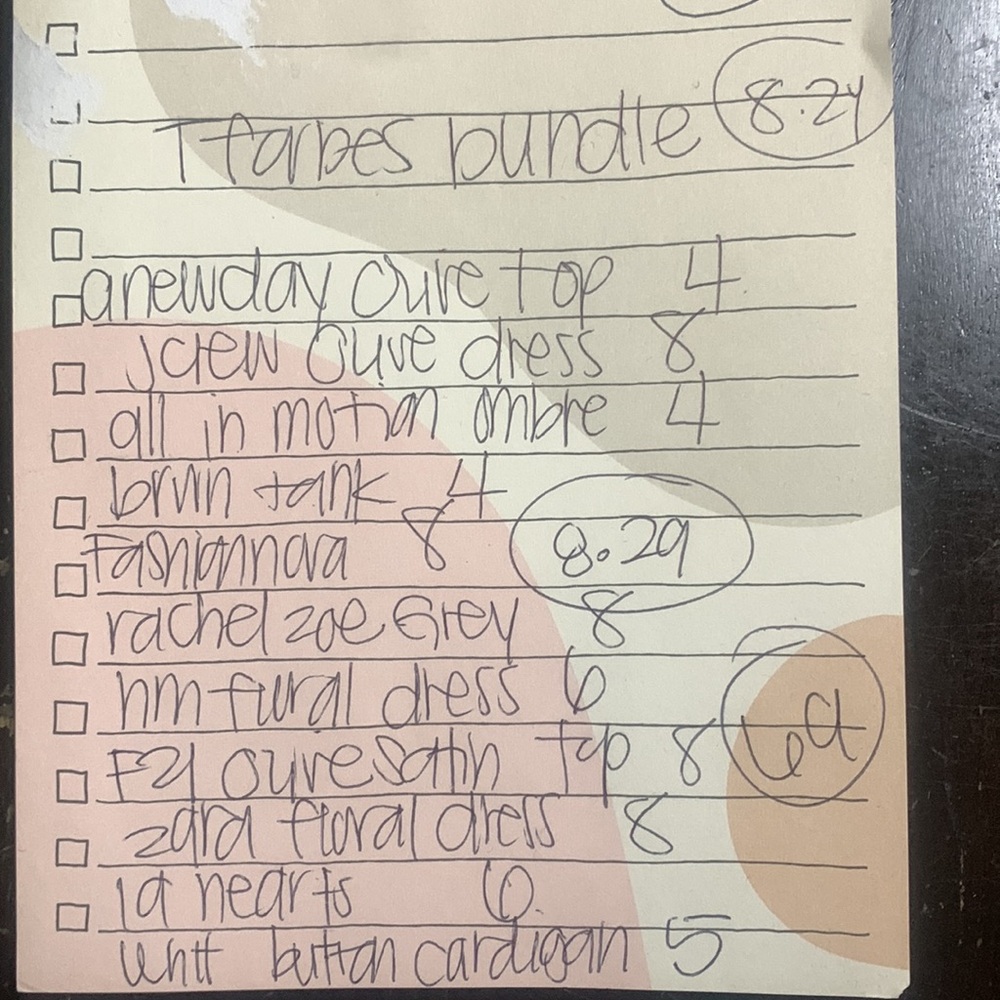 T forbes bundle 8.24
anewday olive top 4
jcrew olive dress 8
all in motion ombre 4
brwn tank 4
Fashionnova 8 8.29
rachel zoe Grey 8
hm flural dress 6
F21 olive satin top 8 69
zara floral dress 8
la hearts 6
whtt button cardigan 5